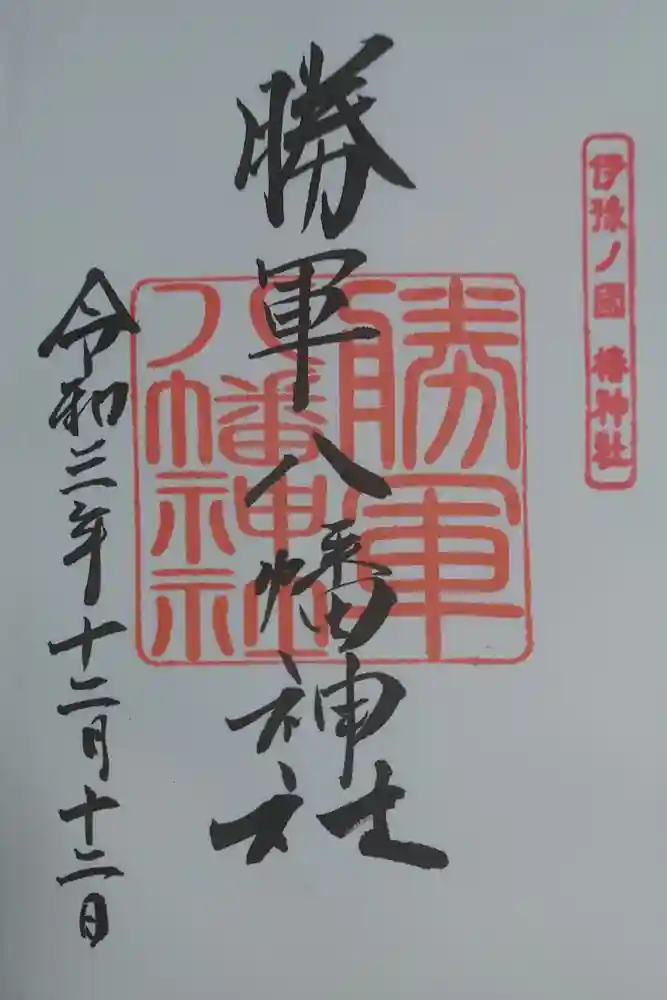 伊豫ノ國 椿神社
勝軍八幡神社
勝軍八幡神社
令和三年十二月十二日